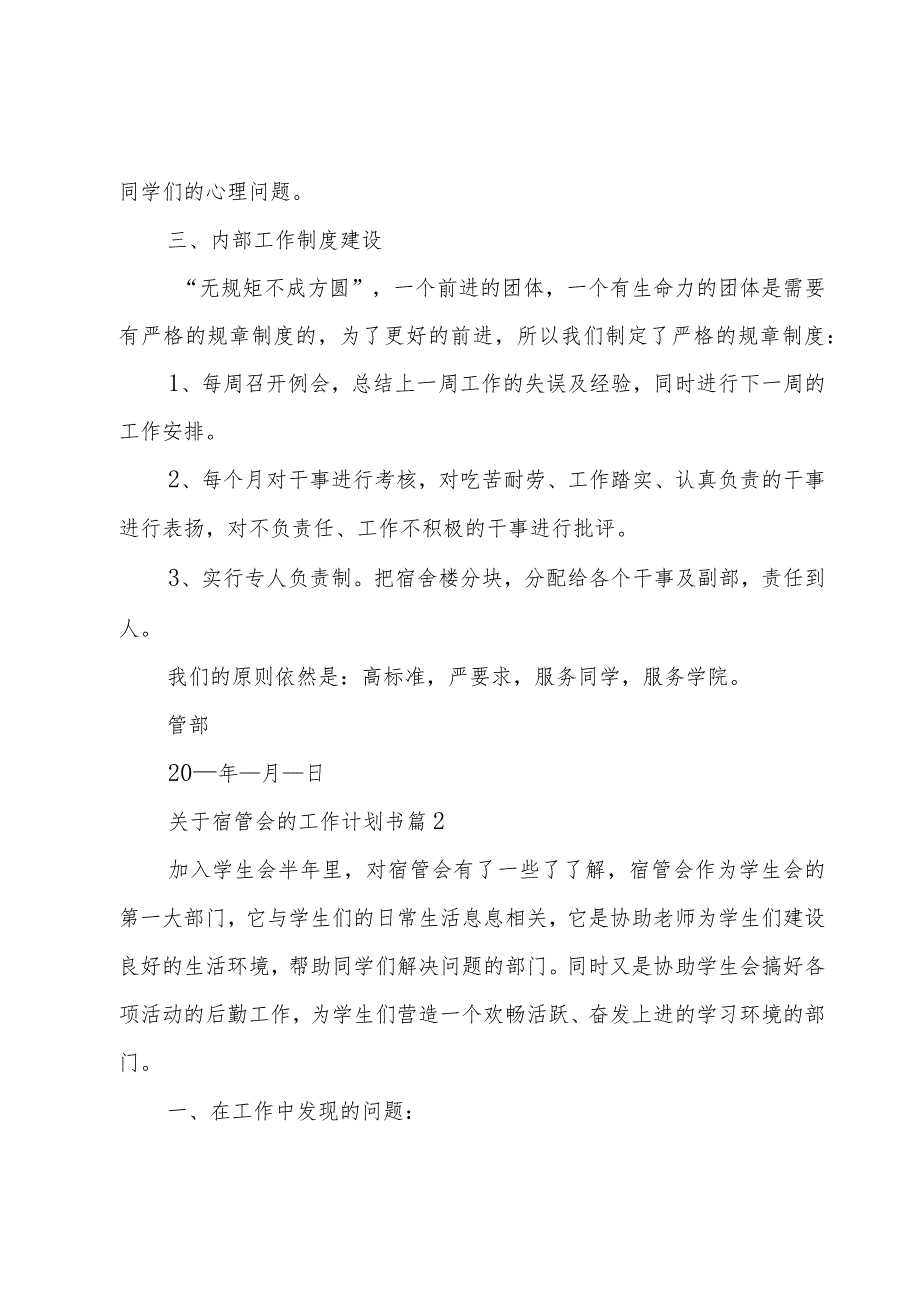 同学们的心理问题。
三、内部工作制度建设
“无规矩不成方圆”，一个前进的团体，一个有生命力的团体是需要
有严格的规章制度的，为了更好的前进，所以我们制定了严格的规章制度：
1、每周召开例会，总结上一周工作的失误及经验，同时进行下一周的
工作安排。
2、每个月对干事进行考核，对吃苦耐劳、工作踏实、认真负责的干事
进行表扬，对不负责任、工作不积极的干事进行批评。
3、实行专人负责制。把宿舍楼分块，分配给各个干事及副部，责任到
人。
我们的原则依然是：高标准，严要求，服务同学，服务学院。
管部
20—年—月—日
关于宿管会的工作计划书篇2
加入学生会半年里，对宿管会有了一些了了解，宿管会作为学生会的
第一大部门，它与学生们的日常生活息息相关，它是协助老师为学生们建设
良好的生活环境，帮助同学们解决问题的部门。同时又是协助学生会搞好各
项活动的后勤工作，为学生们营造一个欢畅活跃、奋发上进的学习环境的部
门。
一、在工作中发现的问题：